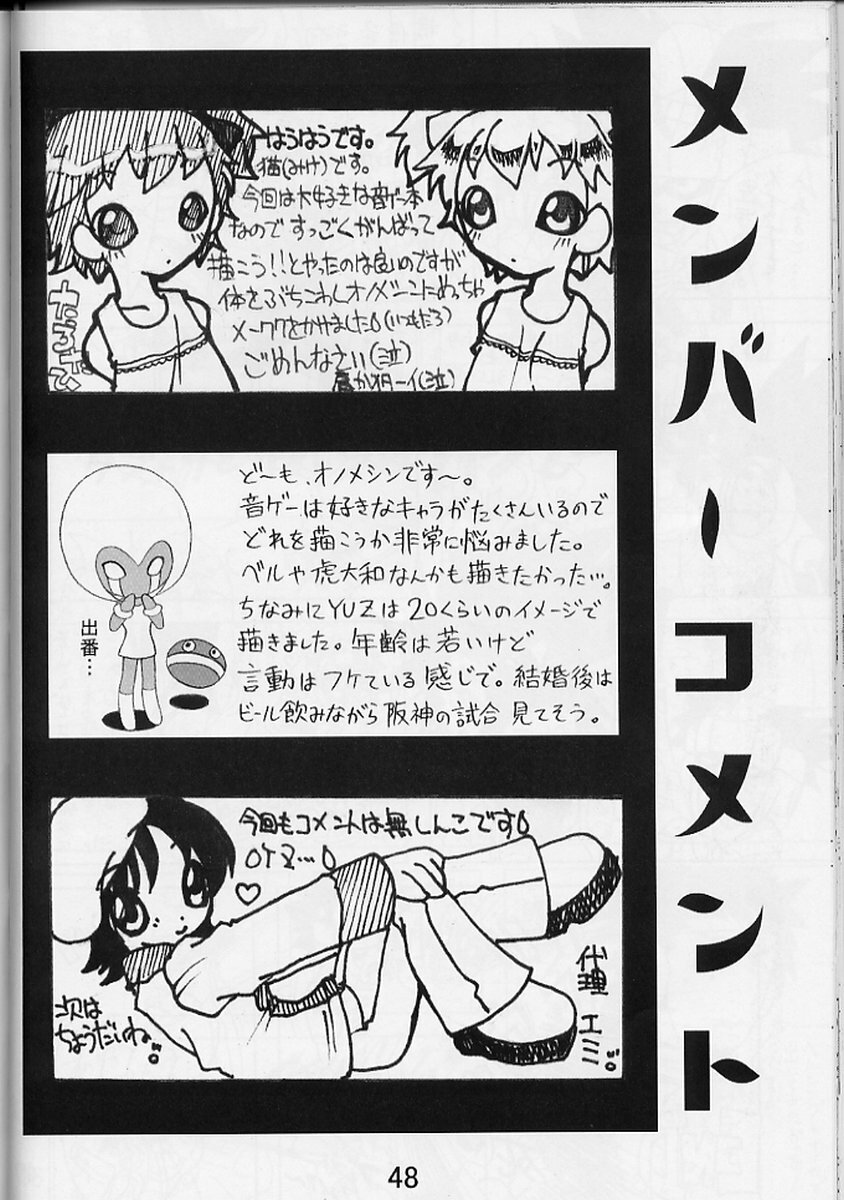 メンバーコメント
はうはうです。
猫(みけ)です。
今回は大好きな音ゲー本
なので すっごくがんばって
描こう!!とやったのは良いのですが
体をぶちこわしオノメシンにめっちゃ
メーワクをかけました(いつもだろ)
ごめんなさい(泣)
ど〜も、オノメシンです〜。
音ゲーは好きなキャラがたくさんいるので
どれを描こうか非常に悩みました。
ベルや虎大和なんかも描きたかった…。
ちなみにYUZは20くらいのイメージで
描きました。年齢は若いけど
言動はフケている感じで。結婚後は
ビール飲みながら阪神の試合見てそう。
出番…
今回もコメントは無しんこです
次は
ちょうだいね。
代理 エミ
48